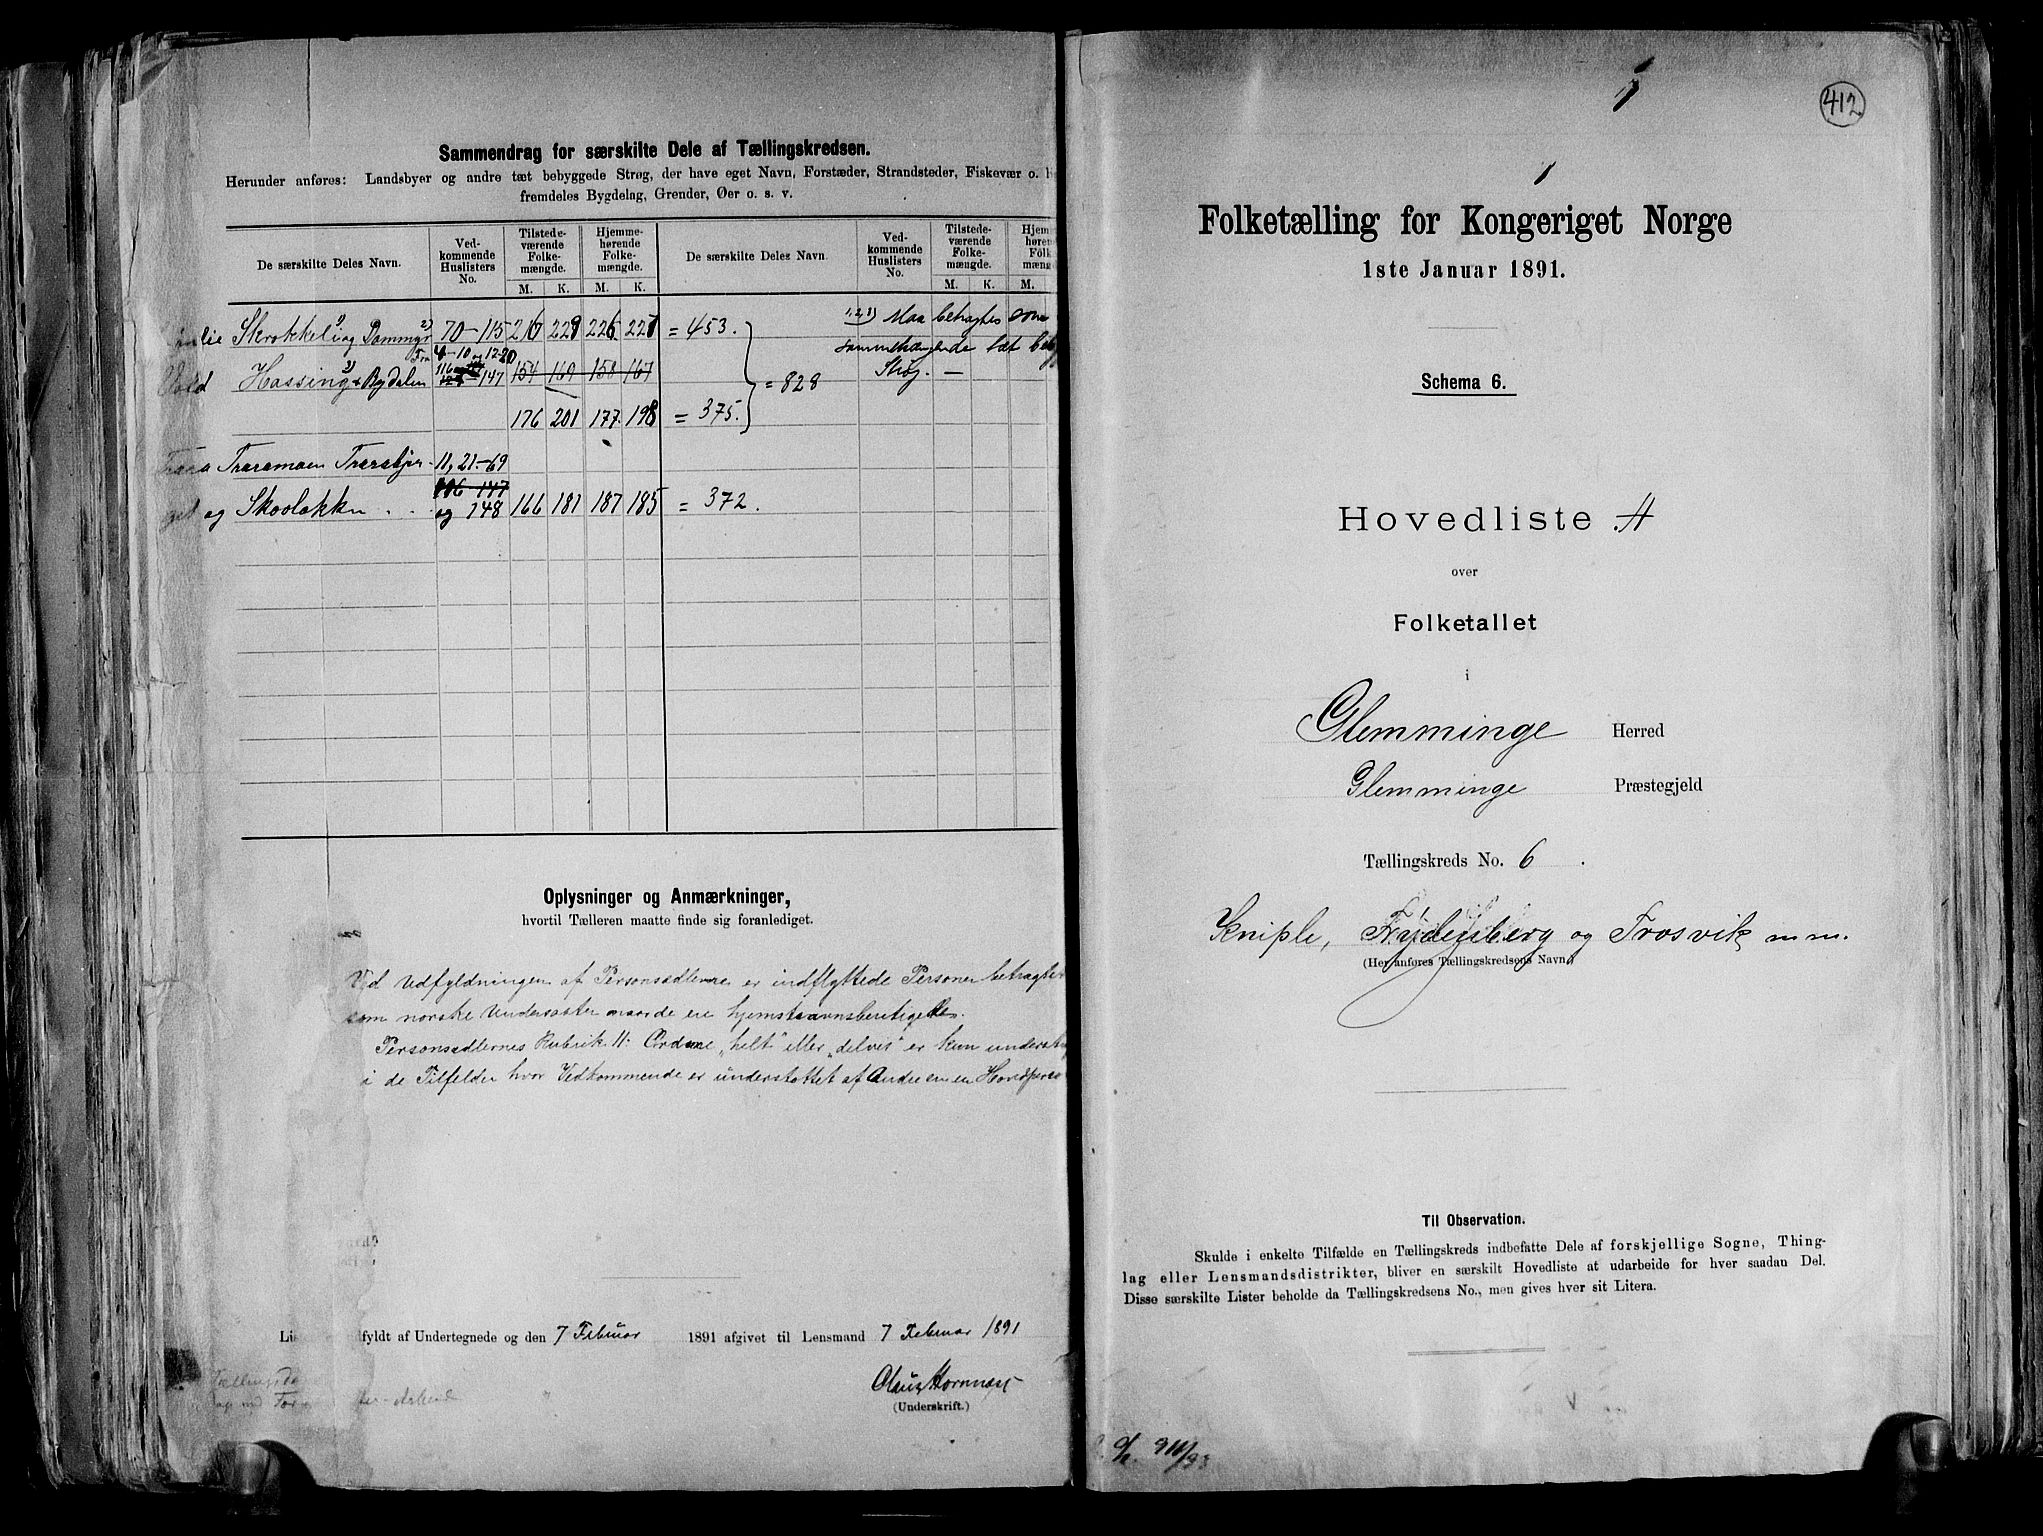 Sammendrag for særskilte Dele af Tællingskredsen.
Herunder anføres: Landsbyer og andre tæt bebyggede Strøg, der have eget Navn, Forstæder, Strandsteder, Fiskevær o.
fremdeles Bygdelag, Grender, Øer o. s. v.
De særskilte Deles Navn. Ved-kommende Huslisters No. Tilstede-værende Folke-mængde. Hjemme-hørende Folke-mængde. De særskilte Deles Navn. Ved-kommende Huslisters No. Tilstede-værende Folke-mængde.
M. K. M. K. M. K. M.
Skrokkeli og Dammyr 70-115 216 229 226 227 = 453. 1,2,3) Maa betragtes som
Fra 4-10 og 12-20 sammenhængende tæt
Hassing og Bydalen 116 - 147 154 169 158 167 = 828 Strøg. —
176 201 177 198 = 375.
Traramoen 11, 21-69
116-147
og Skovløkken . . og 148 166 181 187 185 = 372.
Oplysninger og Anmærkninger,
hvortil Tælleren maatte finde sig foranlediget.
Ved Udfyldningen af Personsedlerne er indflyttede Personer
som norske Undersaatter naar de ere hjemstavnsberettigede.
Personsedlernes Rubrik 11: Ordene „helt" eller „delvis" er kun
i de Tilfælder hvor Vedkommende er understøttet af Andre en en
fyldt af Undertegnede og den 7 Februar 1891 afgivet til Lensmand 7 Februar 1891
Claus Hornnæs
(Underskrift.)
412
Folketælling for Kongeriget Norge
1ste Januar 1891.
Schema 6.
Hovedliste A
over
Folketallet
i
Glemminge Herred
Glemminge Præstegjeld
Tællingskreds No. 6.
Kniple, Frydenberg og Trosvik m.m.
(Her anføres Tællingskredsens Navn.)
Til Observation.
Skulde i enkelte Tilfælde en Tællingskreds indbefatte Dele af forskjellige Sogne, Thing-
lag eller Lensmandsdistrikter, bliver en særskilt Hovedliste at udarbeide for hver saadan Del.
Disse særskilte Lister beholde da Tællingskredsens No., men gives hver sit Litera.